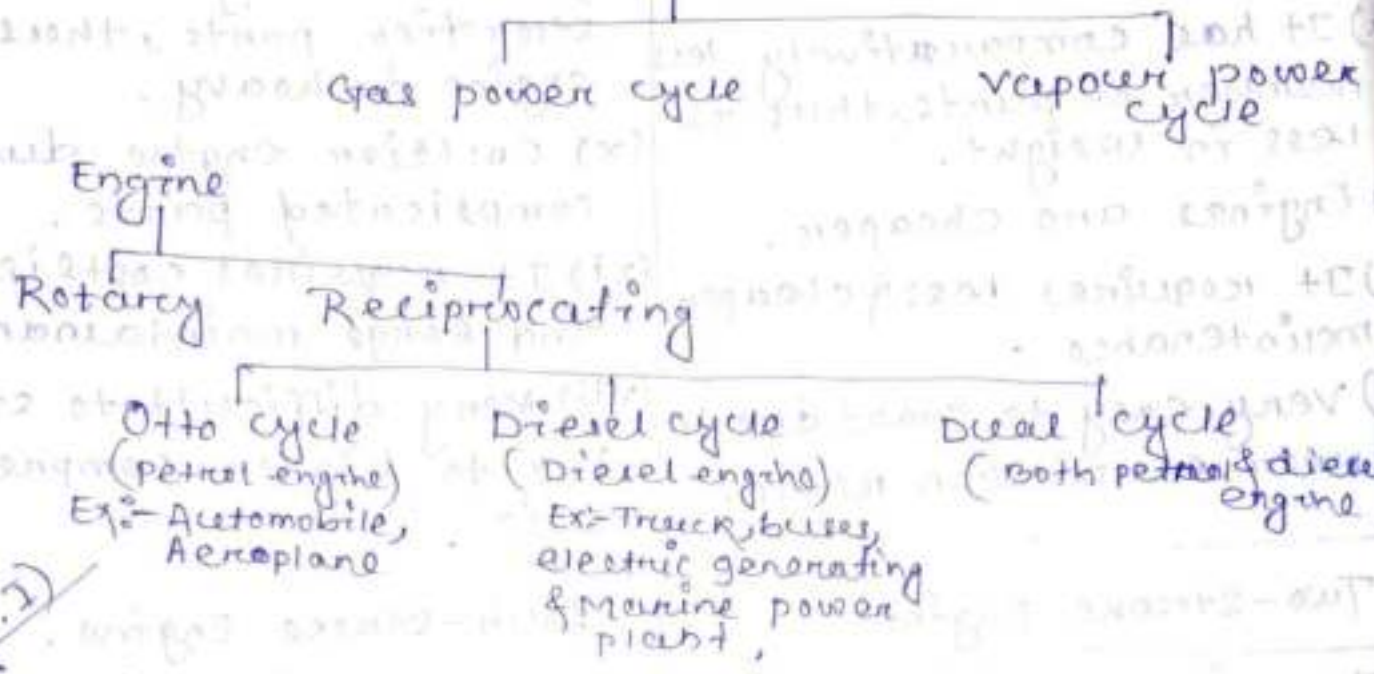 Gas power cycle
vapour power
cycle
Engine
Rotary
Reciprocating
Otto cycle
(petrol engine)
Ex:- Automobile,
Aeroplane
Diesel cycle
(Diesel engine)
Ex:- Truck, buses,
electric generating
& Marine power
plant,
Dual cycle
(Both petrol & diese
engine